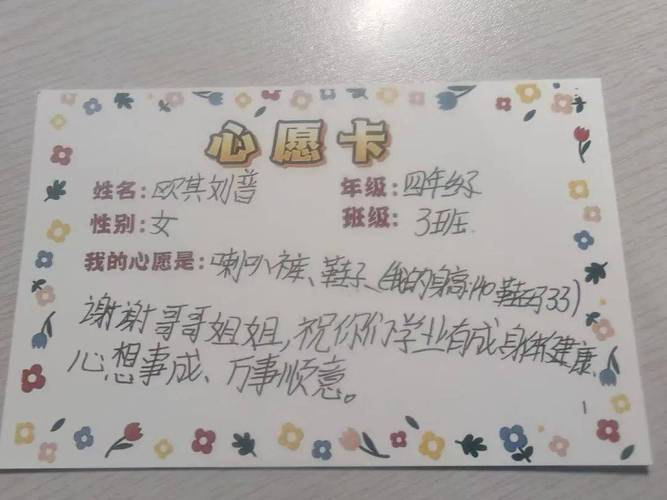 心愿卡
姓名：欧其刘普 年级：四年级
性别：女 班级：3班
我的心愿是：喇叭裤、鞋子（我的身高140鞋码33）
谢谢哥哥姐姐，祝你们学业有成身体健康
心想事成、万事顺意。
1